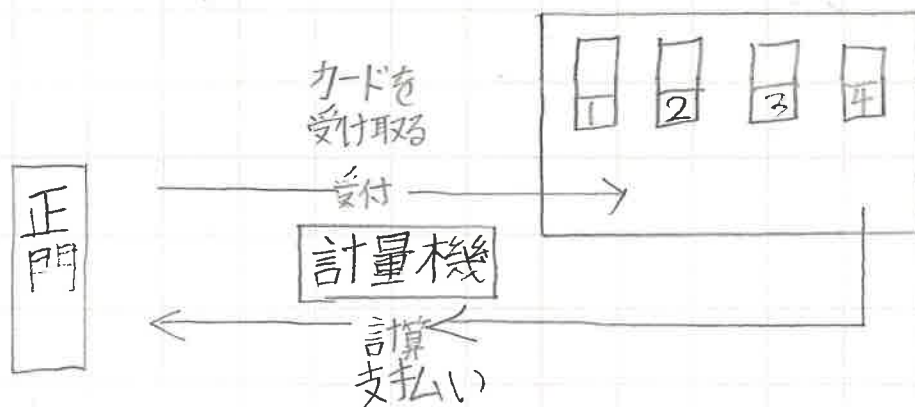 カードを
受け取る
受付
正門
計量機
計算
支払い
1
2
3
4